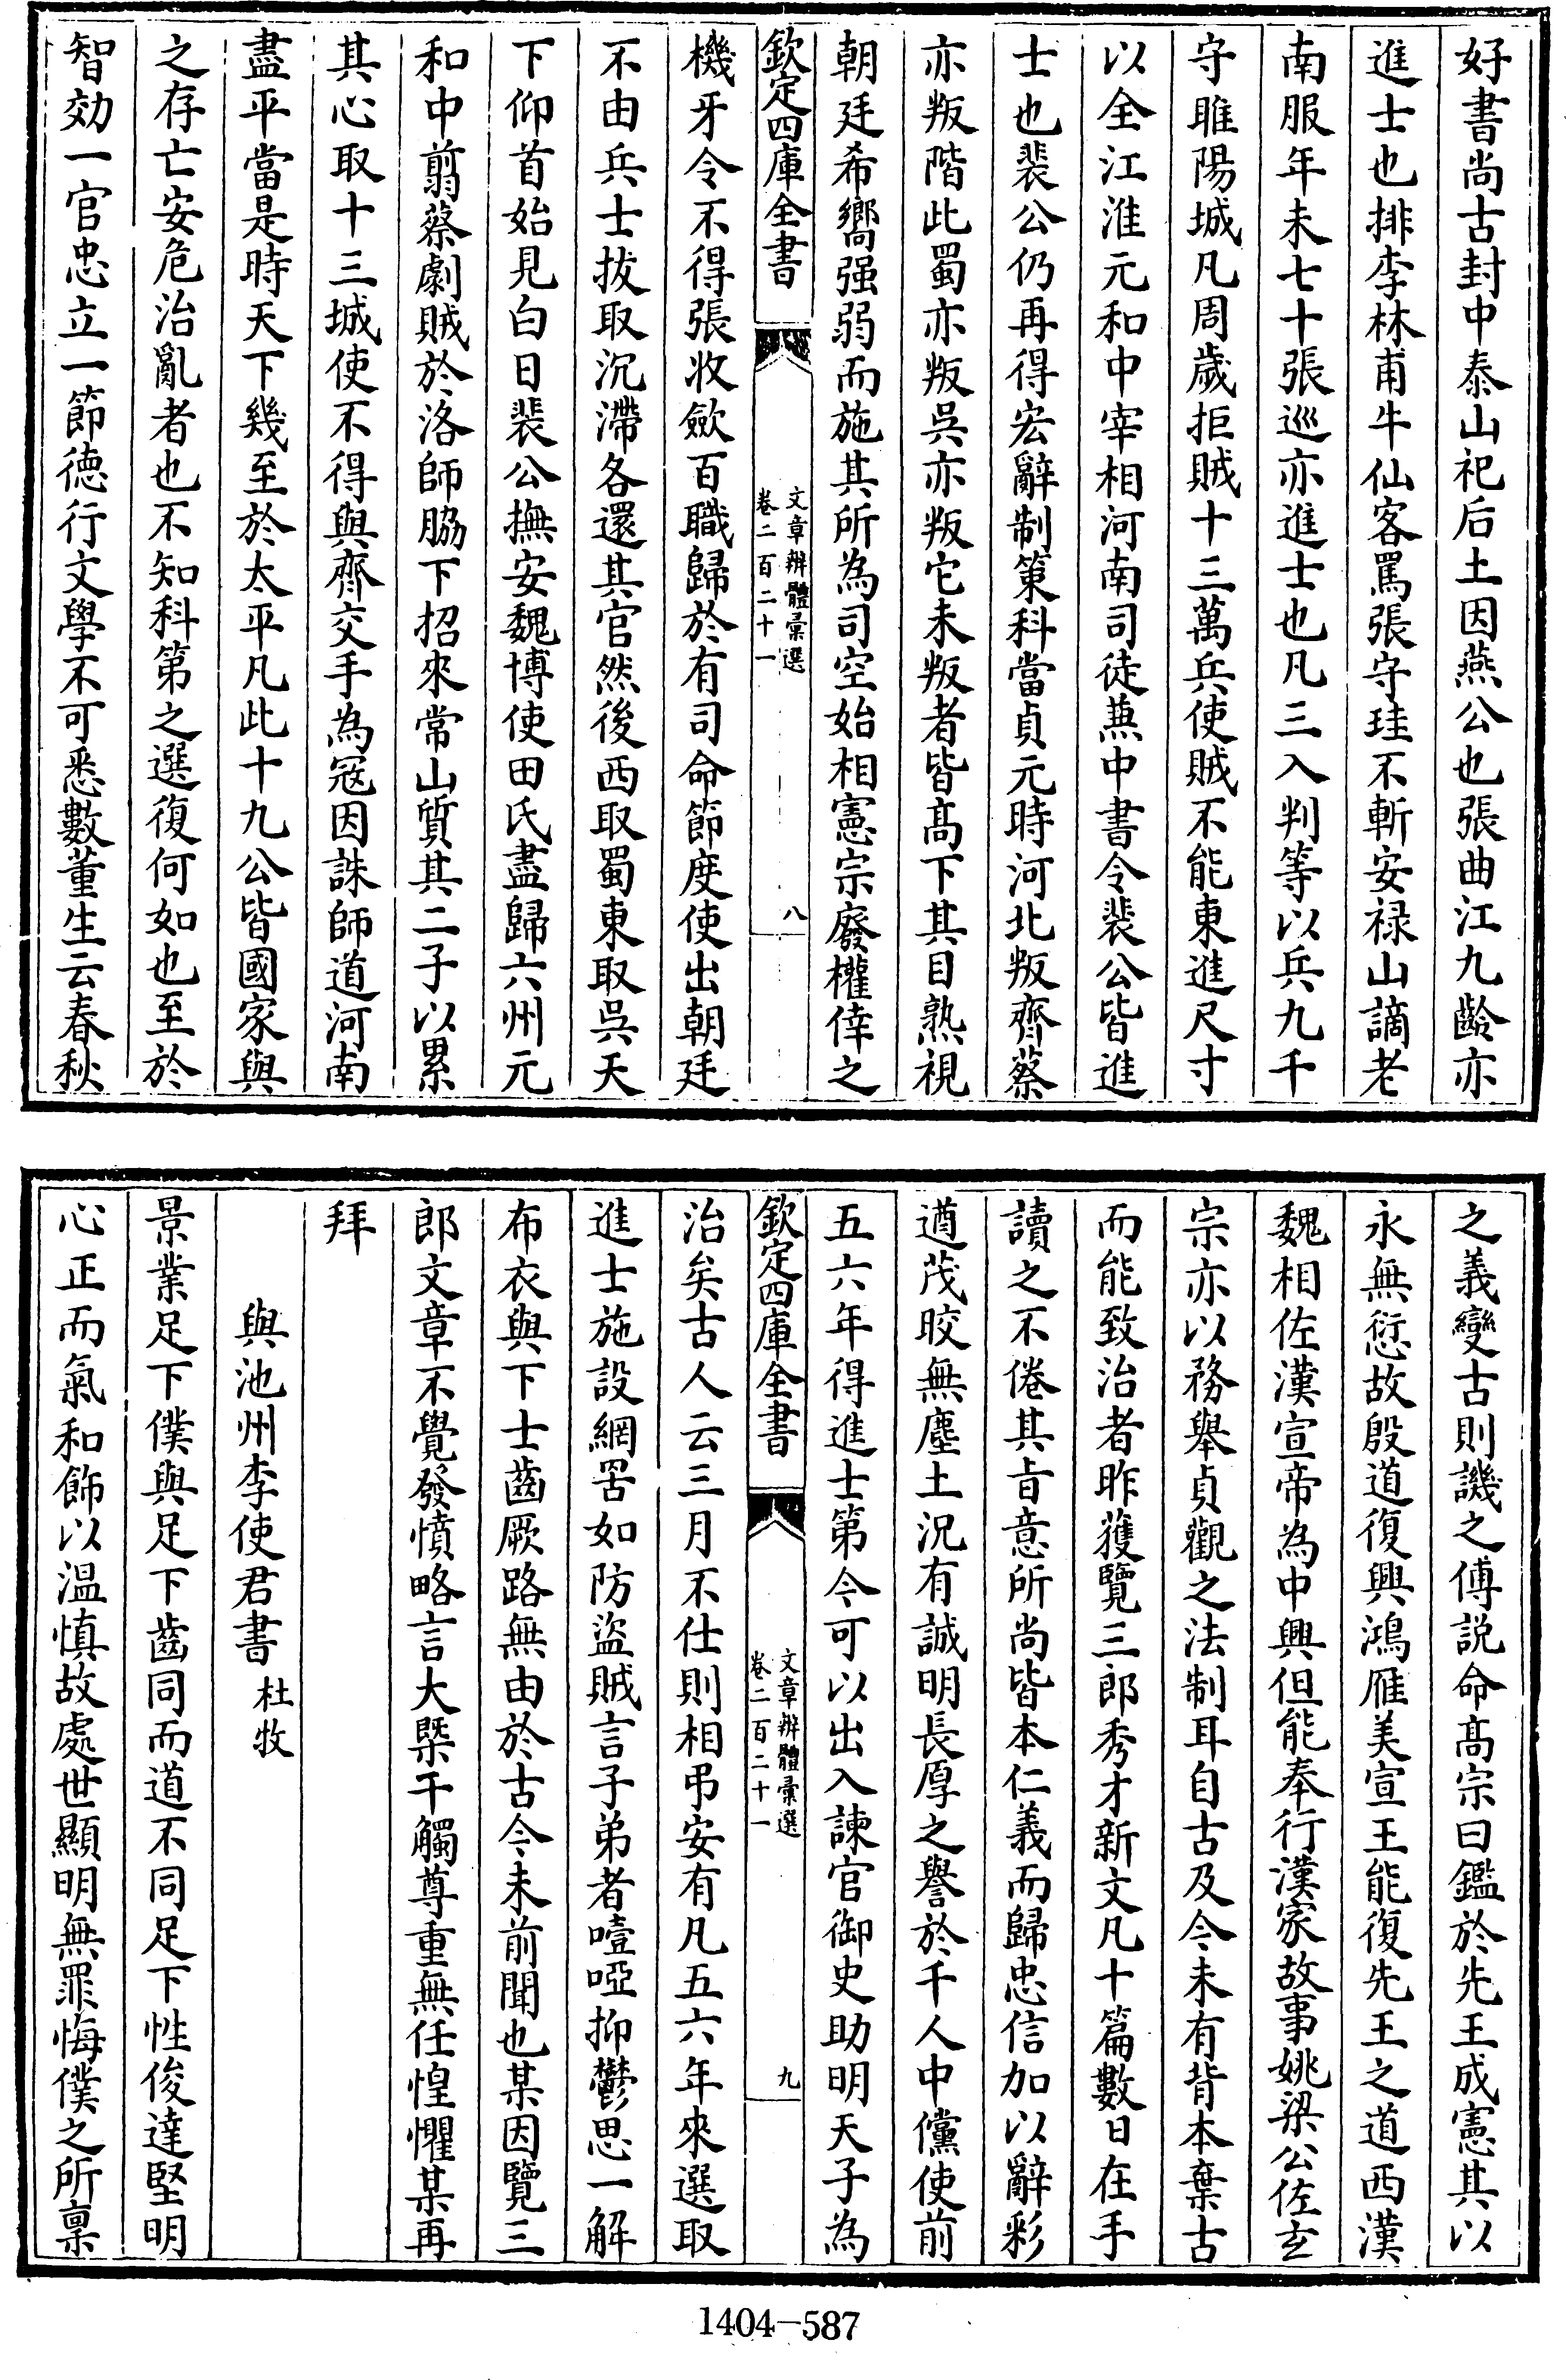 好書尚古封中泰山祀后土因燕公也張曲江九齡亦
進士也排李林甫牛仙客罵張守珪不斬安禄山謫老
南服年未七十張巡亦進士也凡三入判等以兵九千
守睢陽城凡周歲拒賊十三萬兵使賊不能東進尺寸
以全江淮元和中宰相河南司徒兼中書令裴公皆進
士也裴公仍再得宏辭制策科當貞元時河北叛齊蔡
亦叛階此蜀亦叛吳亦叛它未叛者皆髙下其目熟視
朝廷希嚮强弱而施其所為司空始相憲宗廢權倖之
欽定四庫全書
文章辨體彚選
卷二百二十一
八
機牙令不得張收斂百職歸於有司命節度使出朝廷
不由兵士拔取沉滯各還其官然後西取蜀東取吳天
下仰首始見白日裴公撫安魏博使田氏盡歸六州元
和中翦蔡劇賊於洛師脇下招來常山質其二子以累
其心取十三城使不得與齊交手為寇因誅師道河南
盡平當是時天下幾至於太平凡此十九公皆國家與
之存亡安危治亂者也不知科第之選復何如也至於
智効一官忠立一節徳行文學不可悉數董生云春秋
之義變古則譏之傅説命髙宗曰鑑於先王成憲其以
永無愆故殷道復興鴻雁美宣王能復先王之道西漢
魏相佐漢宣帝為中興但能奉行漢家故事姚梁公佐𤣥
宗亦以務舉貞觀之法制耳自古及今未有背本棄古
而能致治者昨獲覽三郎秀才新文凡十篇數日在手
讀之不倦其旨意所尚皆本仁義而歸忠信加以辭彩
遒茂皎無塵土况有誠明長厚之譽於千人中儻使前
五六年得進士第今可以出入諫官御史助明天子為
欽定四庫全書
文章辨體彚選
卷二百二十一
九
治矣古人云三月不仕則相弔安有凡五六年來選取
進士施設網罟如防盜賊言子弟者噎啞抑鬱思一解
布衣與下士齒厥路無由於古今未前聞也某因覽三
郎文章不覺發憤略言大槩干觸尊重無任惶懼某再
拜
與池州李使君書 杜牧
景業足下僕與足下齒同而道不同足下性俊達堅明
心正而氣和飾以温慎故處世顯明無罪悔僕之所稟
1404—587